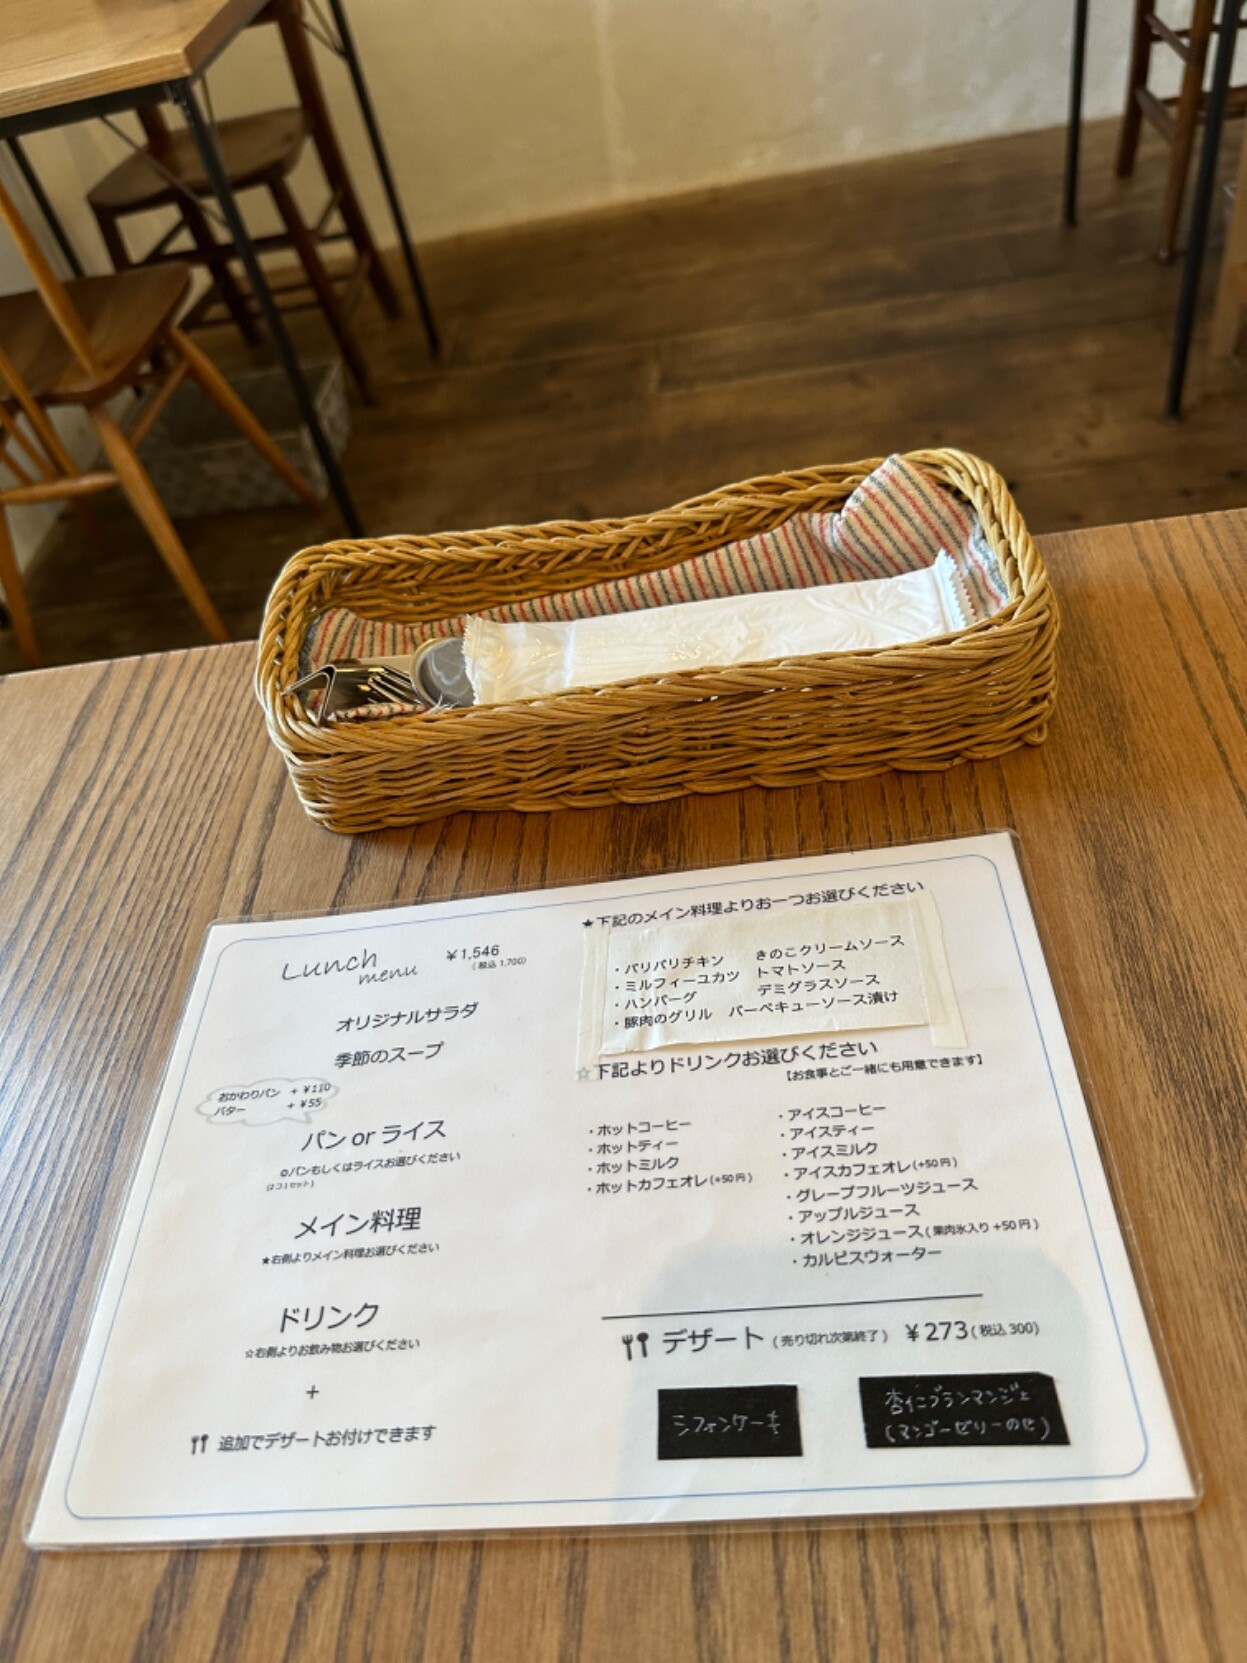 Lunch menu
¥1,546
(税込 1,700)
オリジナルサラダ
季節のスープ
おかわりパン +¥110
バター +¥55
パン or ライス
✿パンもしくはライスお選びください
(2コ1セット)
メイン料理
★右側よりメイン料理お選びください
ドリンク
☆右側よりお飲み物お選びください
+
追加でデザートお付けできます
★下記のメイン料理よりお一つお選びください
・パリパリチキン きのこクリームソース
・ミルフィーユカツ トマトソース
・ハンバーグ デミグラスソース
・豚肉のグリル バーベキューソース漬け
☆下記よりドリンクお選びください
【お食事とご一緒にも用意できます】
・ホットコーヒー
・ホットティー
・ホットミルク
・ホットカフェオレ(+50円)
・アイスコーヒー
・アイスティー
・アイスミルク
・アイスカフェオレ(+50円)
・グレープフルーツジュース
・アップルジュース
・オレンジジュース(果肉氷入り+50円)
・カルピスウォーター
デザート (売り切れ次第終了) ¥273(税込300)
シフォンケーキ
杏仁ブランマンジェ
(マンゴーゼリーのせ)